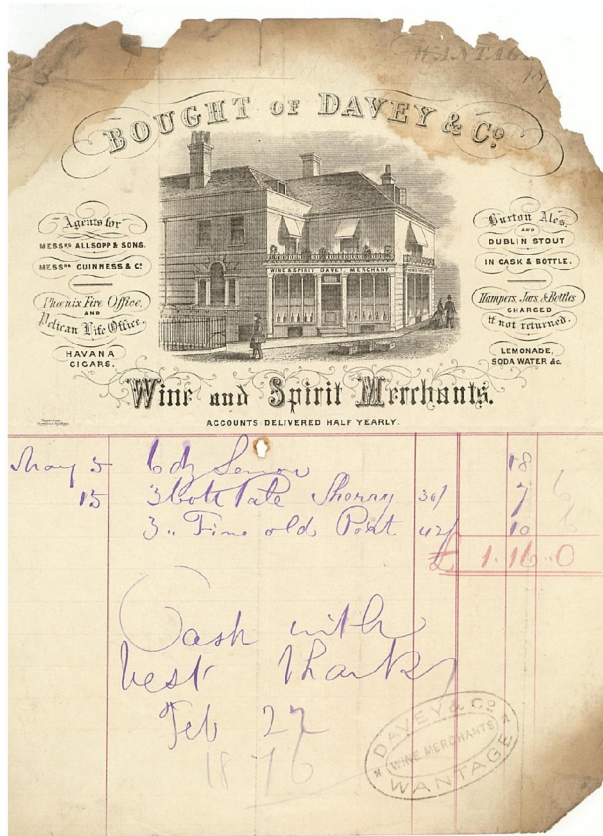 WANTAGE
BOUGHT OF DAVEY & Co.
Agents for
MESSRS ALLSOPP & SONS.
MESSRS GUINNESS & Co
Phœnix Fire Office,
AND
Pelican Life Office.
HAVANA
CIGARS.
WINE & SPIRIT DAVEY MERCHANT
Burton Ales,
AND
DUBLIN STOUT
IN CASK & BOTTLE.
Hampers, Jars, & Bottles
CHARGED
if not returned.
LEMONADE,
SODA WATER &c.
Wine and Spirit Merchants.
ACCOUNTS DELIVERED HALF YEARLY.
May 5 6 dz 18
15 3 Bott Pale Sherry 30/ 7 6
3 " Fine old Port 42/ 10 6
£ 1.16.0
Cash with
best thanks
Feb 22
1876
DAVEY & Co
WINE MERCHANTS
WANTAGE